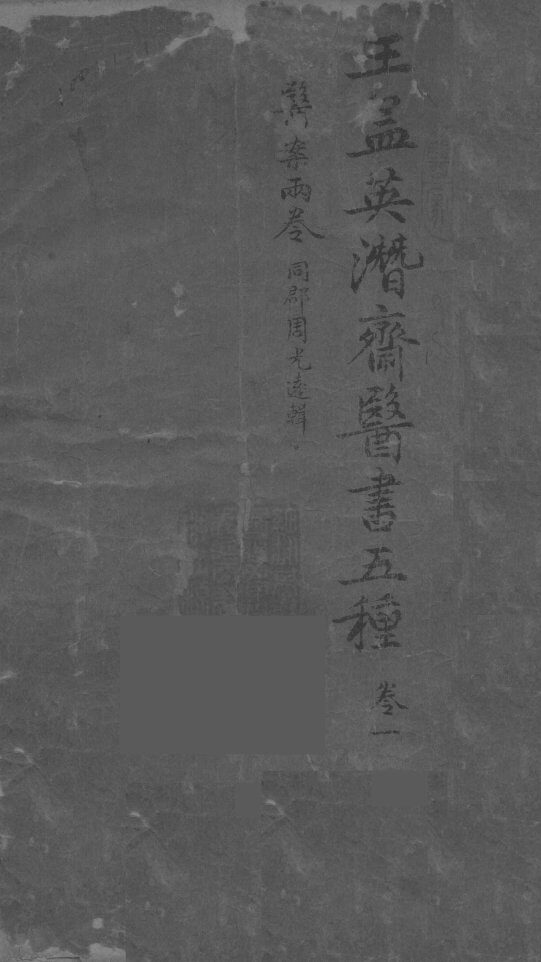 王孟英潛齋醫書五種 卷一
醫案兩卷 同郡周光遠輯